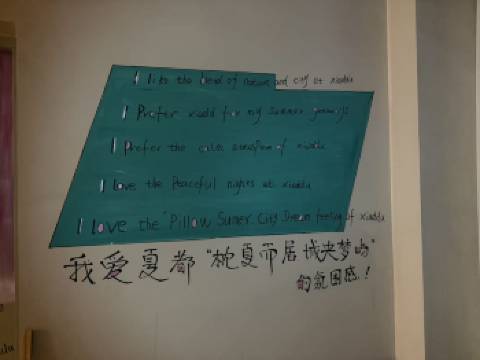 I like the blend of nature and city at xiadu
I Prefer xiadu for my summer
I prefer the calm of xiadu
I love the Peaceful nights at xiadu
I love the "Pillow Summer City Dream feeling of xiadu
我爱夏都“枕夏而居 城央梦
的氛围感！